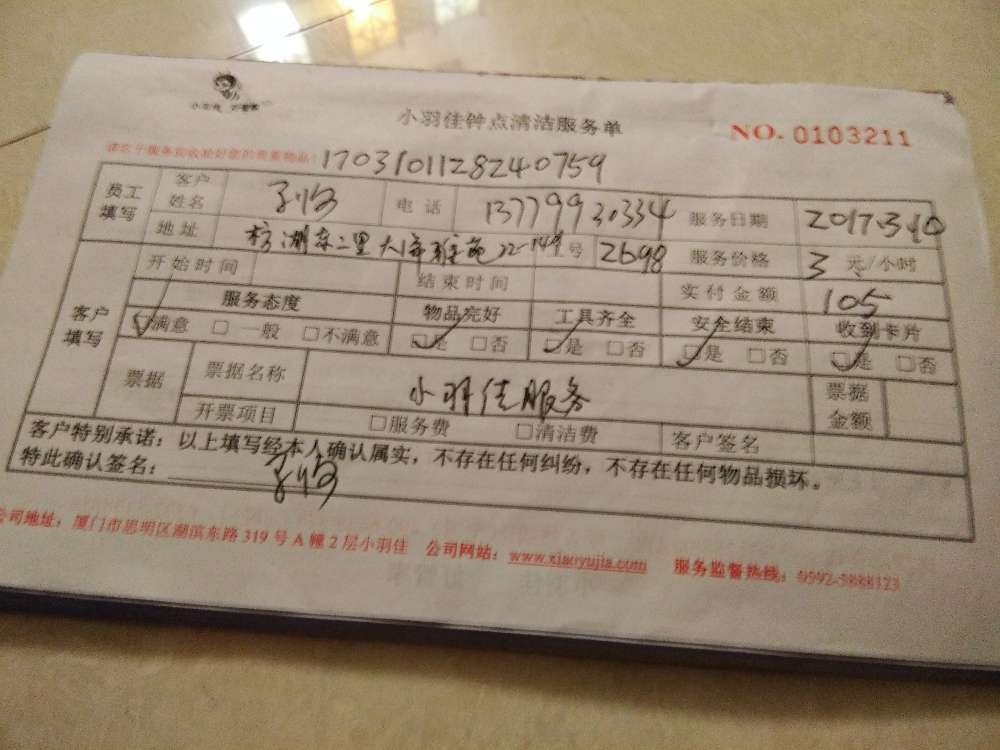 小羽佳钟点清洁服务单
NO. 0103211
请在子服务前收捡好您的贵重物品!
1703101128240759
员工填写 客户姓名 电话 13779930334 服务日期 2017.3.10
地址 湖东二里 22-149号 2698 服务价格 3 元/小时
客户填写 开始时间 结束时间 实付金额 105
服务态度 物品完好 工具齐全 安全结束 收到卡片
☑满意 □一般 □不满意 ☑是 □否 ☑是 □否 ☑是 □否 ☑是 □否
票据 票据名称 小羽佳服务 票据金额
开票项目 □服务费 □清洁费 客户签名
客户特别承诺:以上填写经本人确认属实,不存在任何纠纷,不存在任何物品损坏。
特此确认签名:
公司地址:厦门市思明区湖滨东路319号A幢2层小羽佳 公司网站:www.xiaoyujia.com 服务监督热线:0592-5888123